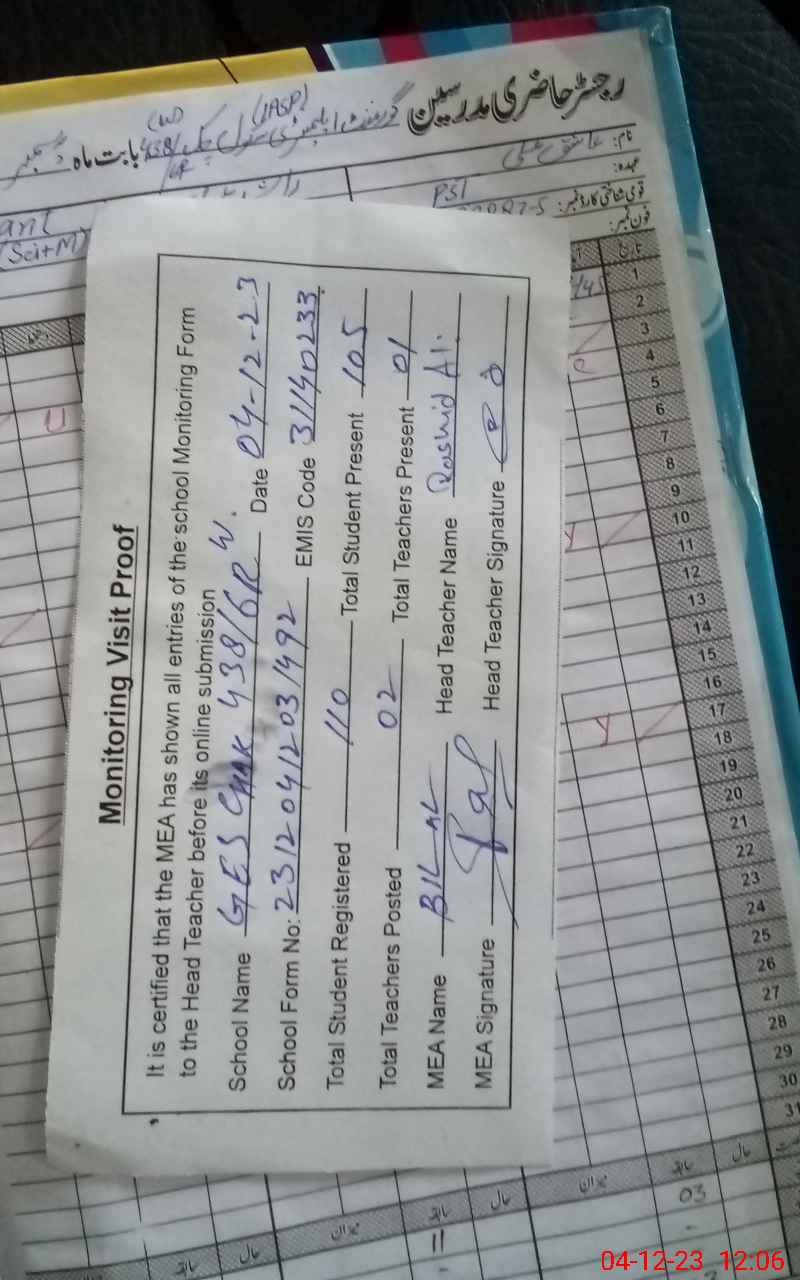 رجسٹر حاضری مدرسین گورنمنٹ ایلیمنٹری سکول چک 438/GR (W) (IASP) بابت ماہ دسمبر
نام: عاشق علی
عہدہ: PST
قومی شناختی کارڈ نمبر:
فون نمبر:
(Sci+M)
تاریخ
Monitoring Visit Proof
It is certified that the MEA has shown all entries of the school Monitoring Form
to the Head Teacher before its online submission
School Name GES CHAK 438/GR W. Date 04-12-23
School Form No: 23120412031492 EMIS Code 31140233
Total Student Registered 110 Total Student Present 105
Total Teachers Posted 02 Total Teachers Present 01
MEA Name BILAL Head Teacher Name Rashid Al.
MEA Signature Head Teacher Signature
1
2
3
4
5
6
7
8
9
10
11
12
13
14
15
16
17
18
19
20
21
22
23
24
25
26
27
28
29
30
31
حال سابقہ میزان حال سابقہ میزان حال سابقہ
03
04-12-23 12:06